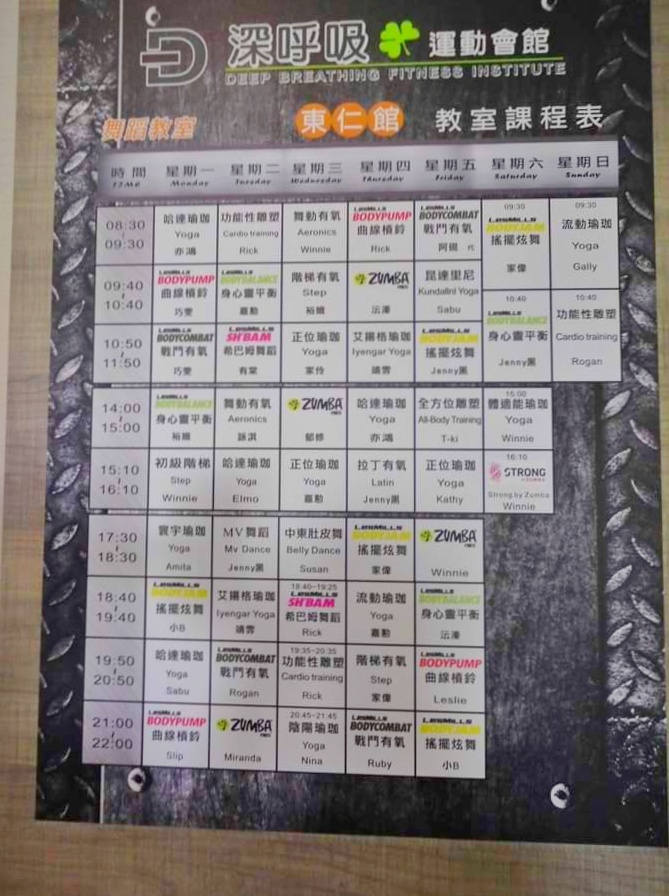 深呼吸 運動會館
DEEP BREATHING FITNESS INSTITUTE
舞蹈教室 東仁館 教室課程表
時間 星期一 星期二 星期三 星期四 星期五 星期六 星期日
TIME Monday Tuesday Wednesday Thursday Friday Saturday Sunday
08:30
09:30
哈達瑜珈
Yoga
亦鴻
功能性雕塑
Cardio training
Rick
舞動有氧
Aeronics
Winnie
LesMills
BODYPUMP
曲線槓鈴
Rick
LesMills
BODYCOMBAT
戰鬥有氧
阿硯 代
09:30
LesMills
BODYJAM
搖擺炫舞
家偉
09:30
流動瑜珈
Yoga
Gally
09:40
10:40
LesMills
BODYPUMP
曲線槓鈴
巧雯
LesMills
BODYBALANCE
身心靈平衡
嘉勳
階梯有氧
Step
裕嬪
ZUMBA
沄溱
昆達里尼
Kundalini Yoga
Sabu
10:40
LesMills
BODYBALANCE
身心靈平衡
Jenny團
10:40
功能性雕塑
Cardio training
Rogan
10:50
11:50
LesMills
BODYCOMBAT
戰鬥有氧
巧雯
LesMills
SH'BAM
希巴姆舞蹈
有棠
正位瑜珈
Yoga
家伶
艾揚格瑜珈
Iyengar Yoga
靖雰
LesMills
BODYJAM
搖擺炫舞
Jenny團
14:00
15:00
LesMills
BODYBALANCE
身心靈平衡
裕嬪
舞動有氧
Aeronics
詠淇
ZUMBA
郁修
哈達瑜珈
Yoga
亦鴻
全方位雕塑
All-Body Training
T-ki
15:00
體適能瑜珈
Yoga
Winnie
15:10
16:10
初級階梯
Step
Winnie
哈達瑜珈
Yoga
Elmo
正位瑜珈
Yoga
嘉勳
拉丁有氧
Latin
Jenny團
正位瑜珈
Yoga
Kathy
16:10
STRONG
Strong by Zumba
Winnie
17:30
18:30
寰宇瑜珈
Yoga
Amita
MV舞蹈
Mv Dance
Jenny團
中東肚皮舞
Belly Dance
Susan
LesMills
BODYJAM
搖擺炫舞
家偉
ZUMBA
Winnie
18:40
19:40
LesMills
BODYJAM
搖擺炫舞
小B
艾揚格瑜珈
Iyengar Yoga
靖雰
18:40~19:25
LesMills
SH'BAM
希巴姆舞蹈
Rick
流動瑜珈
Yoga
嘉勳
LesMills
BODYBALANCE
身心靈平衡
沄溱
19:50
20:50
哈達瑜珈
Yoga
Sabu
LesMills
BODYCOMBAT
戰鬥有氧
Rogan
19:35~20:35
功能性雕塑
Cardio training
Rick
階梯有氧
Step
家偉
LesMills
BODYPUMP
曲線槓鈴
Leslie
21:00
22:00
LesMills
BODYPUMP
曲線槓鈴
Slip
ZUMBA
Miranda
20:45~21:45
陰陽瑜珈
Yoga
Nina
LesMills
BODYCOMBAT
戰鬥有氧
Ruby
LesMills
BODYJAM
搖擺炫舞
小B